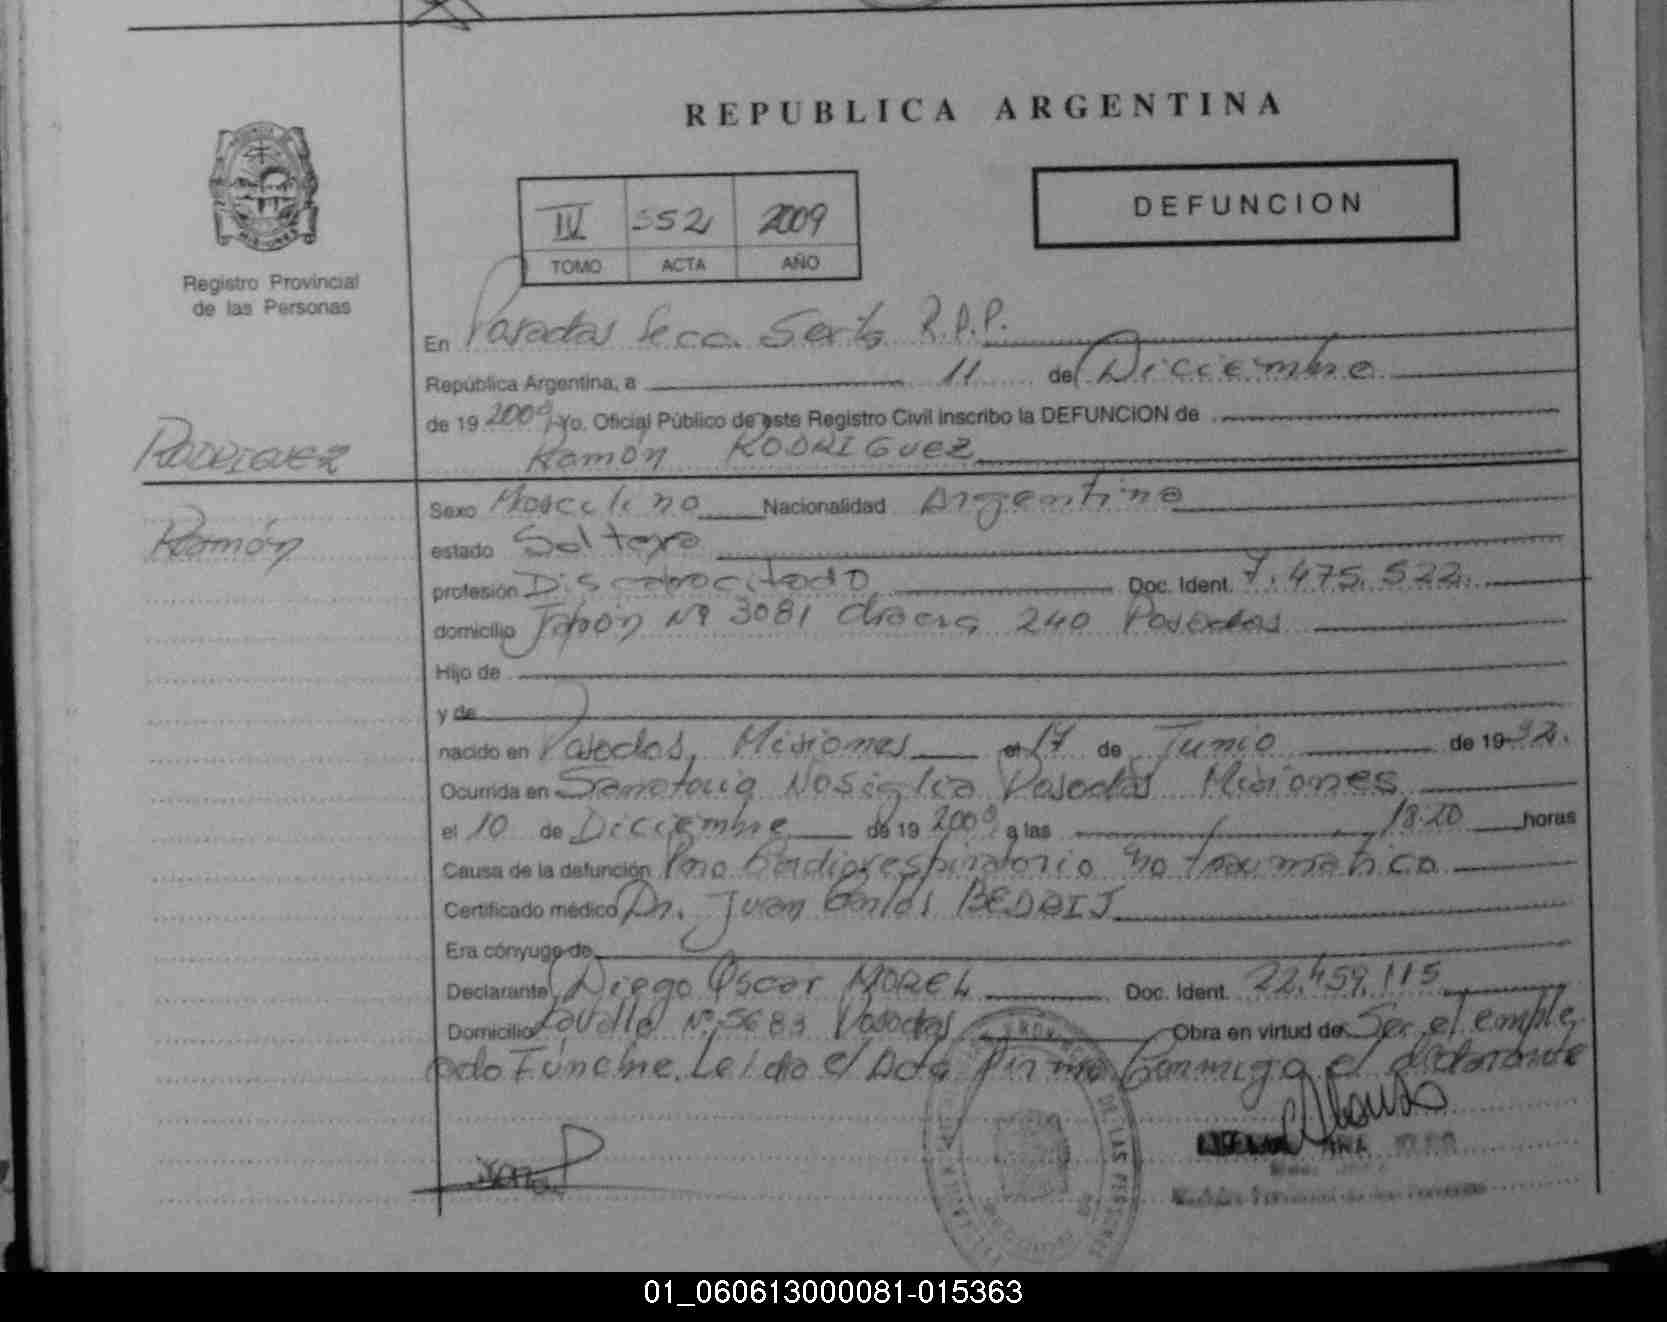 REPUBLICA ARGENTINA
DEFUNCION
IV 552 2009
TOMO ACTA AÑO
Registro Provincial
de las Personas
En Posadas Secc. Sexta R.P.P.
República Argentina, a 11 de Diciembre
de 19 2009 Yo, Oficial Público de este Registro Civil inscribo la DEFUNCION de
RODRIGUEZ
Ramón RODRIGUEZ
Ramón
Sexo Masculino Nacionalidad Argentina
estado Soltero
profesión Discapacitado Doc. Ident. 7.475.522.
domicilio Japón Nº 3081 chacra 240 Posadas
Hijo de
y de
nacido en Posadas, Misiones el 17 de Junio de 19 32.
Ocurrida en Sanatorio Nosiglia Posadas Misiones
el 10 de Diciembre de 19 2009 a las 18:20 horas
Causa de la defunción Paro Cardiorespiratorio no traumático
Certificado médico Dr. Juan Carlos BEDOIJ
Era cónyuge de
Declarante Diego Oscar MOREL Doc. Ident. 22.459.115
Domicilio Lavalle Nº 5683 Posadas Obra en virtud de Ser el emple
ado Fúnebre. Leída el Acta firma conmigo el declarante
DE LAS PERSONAS
ANA
01_060613000081-015363